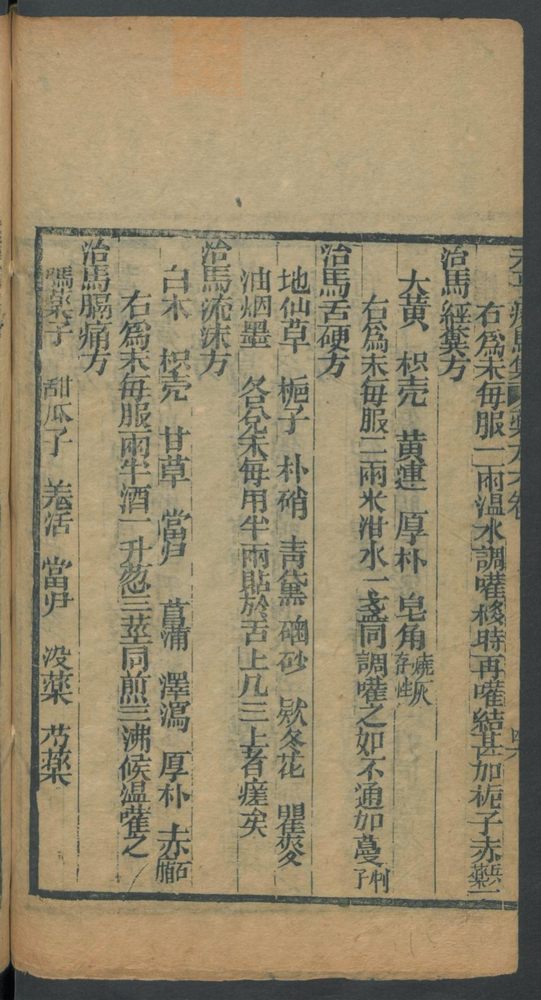 右爲末每服一兩温水調嚾移時再嚾結甚加栀子赤
治馬經糞方
大黃　枳壳　黃連　厚朴　皂角燒灰存性
右爲末每服二兩米泔水一盞同調嚾之如不通加蔓荆子
治馬舌硬方
地仙草　梔子　朴硝　青黛　硇砂　欵冬花　瞿麥
油烟墨　各兌末每用半兩貼於舌上凡三上者瘥矣
治馬流沫方
白朩　枳壳　甘草　當歸　菖蒲　澤瀉　厚朴　赤石脂
右爲末每服兩半酒一升葱三莖同煎三沸候温嚾之
治馬膈痛方
甜瓜子　羗活　當歸　没藥　芍藥